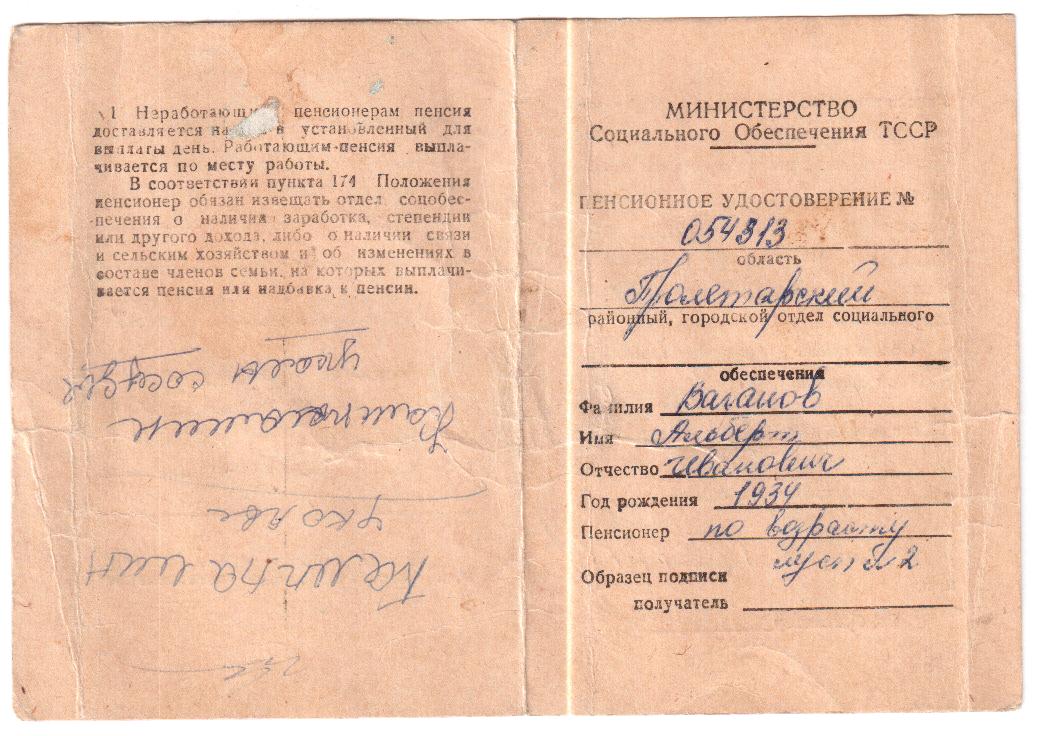 1 Неработающи пенсионерам пенсия
доставляется на в установленный для
выплаты день. Работающим-пенсия выпла-
чивается по месту работы.
В соответствии пункта 174 Положения
пенсионер обязан извещать отдел соцобес-
-печения о наличии заработка, степендии
или другого дохода, либо о наличии связи
и сельским хозяйством и об изменениях в
составе членов семьи, на которых выплачи-
вается пенсия или надбавка к пенсии.
уколы
МИНИСТЕРСТВО
Социального Обеспечения ТССР
ПЕНСИОННОЕ УДОСТОВЕРЕНИЕ №
054313
область
Пролетарский
районный, городской отдел социального
обеспечения
Фамилия Ваганов
Имя Альберт
Отчество Иванович
Год рождения 1934
Пенсионер по возрасту
Образец подписи
получатель